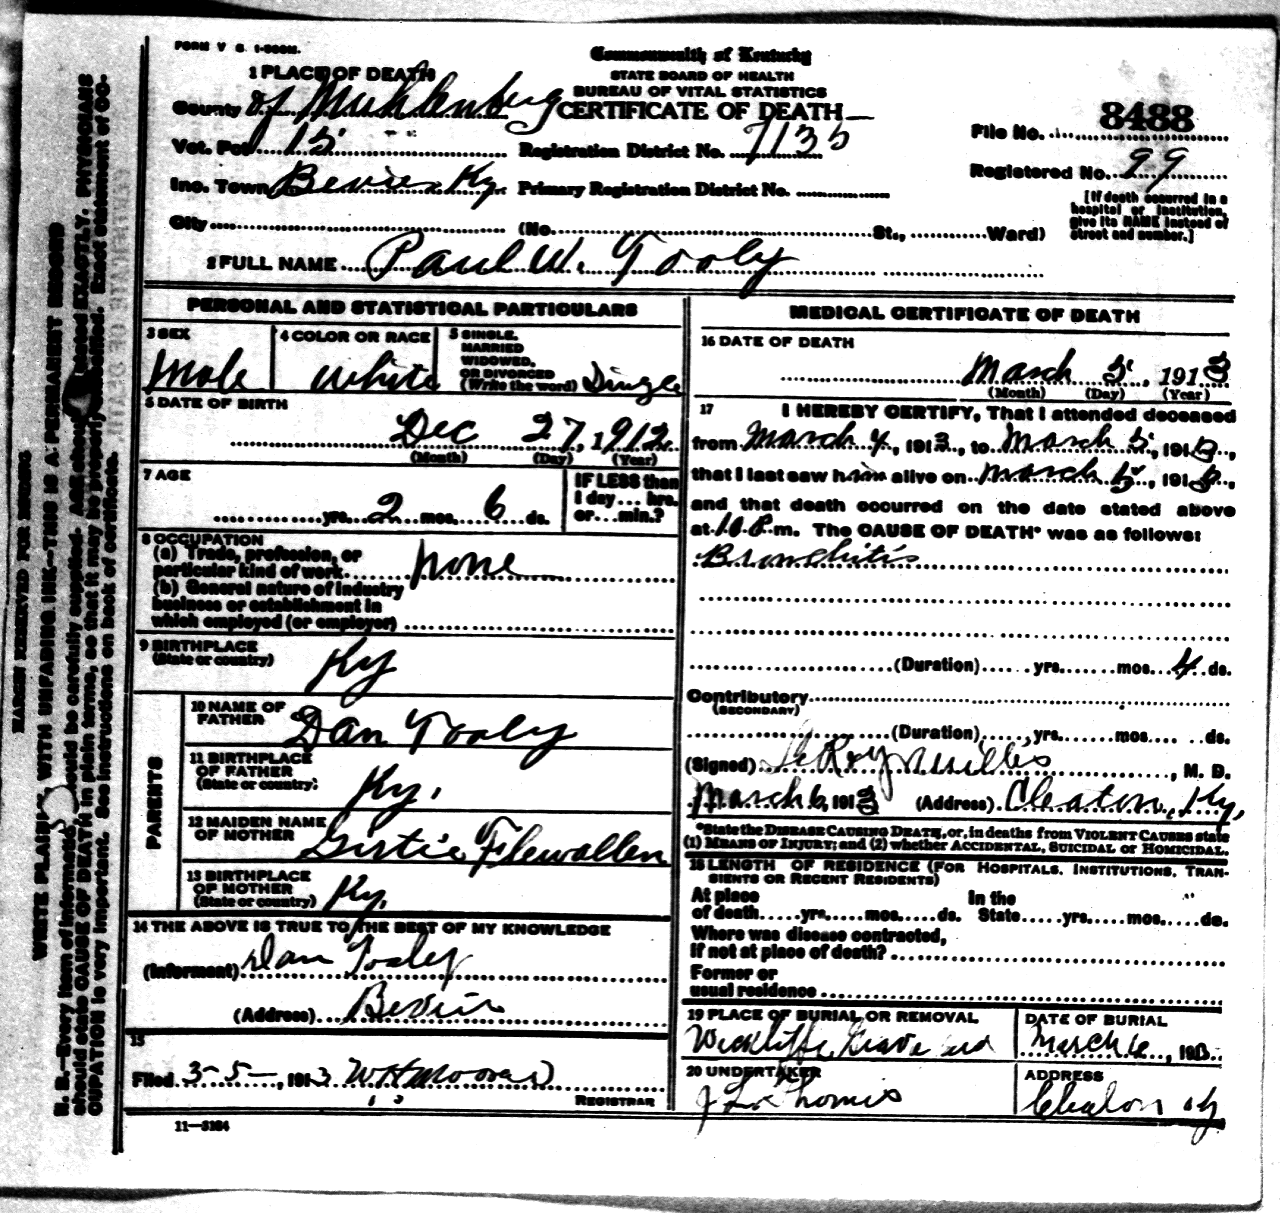 FORM V S. 1-500M.
Commonwealth of Kentucky
STATE BOARD OF HEALTH
BUREAU OF VITAL STATISTICS
CERTIFICATE OF DEATH
1 PLACE OF DEATH
County of Muhlenberg
File No. 8488
Vot. Pct 15 Registration District No. 7135
Registered No. 99
Inc. Town Bevier Ky. Primary Registration District No.
[If death occurred in a hospital or institution, give its NAME instead of street and number.]
City (No. St., Ward)
2 FULL NAME Paul W. Tooly
PERSONAL AND STATISTICAL PARTICULARS
3 SEX Male
4 COLOR OR RACE White
5 SINGLE, MARRIED WIDOWED, OR DIVORCED (Write the word) Single
6 DATE OF BIRTH
Dec 27, 1912
(Month) (Day) (Year)
7 AGE
yrs. 2 mos. 6 ds.
IF LESS than 1 day... hrs. or... min.?
8 OCCUPATION
(a) Trade, profession, or particular kind of work none
(b) General nature of industry business or establishment in which employed (or employer)
9 BIRTHPLACE
(State or country) Ky
PARENTS
10 NAME OF FATHER Dan Tooly
11 BIRTHPLACE OF FATHER (State or country) Ky.
12 MAIDEN NAME OF MOTHER Girtie Flewallen
13 BIRTHPLACE OF MOTHER (State or country) Ky.
14 THE ABOVE IS TRUE TO THE BEST OF MY KNOWLEDGE
(Informant) Dan Tooley
(Address) Bevier
15
Filed 3-5-, 1913 W H Moores
REGISTRAR
11—3184
MEDICAL CERTIFICATE OF DEATH
16 DATE OF DEATH
March 5, 1913
(Month) (Day) (Year)
17 I HEREBY CERTIFY, That I attended deceased
from March 4, 1913, to March 5, 1913,
that I last saw him alive on March 5, 1913,
and that death occurred on the date stated above
at 10 P. m. The CAUSE OF DEATH* was as follows:
Bronchitis
(Duration) yrs. mos. 4 ds.
Contributory
(SECONDARY)
(Duration) yrs. mos. ds.
(Signed) LeRoy Willes, M. D.
March 6, 1913 (Address) Cleaton, Ky,
*State the DISEASE CAUSING DEATH, or, in deaths from VIOLENT CAUSES state
(1) MEANS OF INJURY; and (2) whether ACCIDENTAL, SUICIDAL or HOMICIDAL.
18 LENGTH OF RESIDENCE (FOR HOSPITALS, INSTITUTIONS, TRAN-
SIENTS OR RECENT RESIDENTS)
At place of death yrs. mos. ds. In the State yrs. mos. ds.
Where was disease contracted,
if not at place of death?
Former or
usual residence
19 PLACE OF BURIAL OR REMOVAL
Wickliffe Grave yard
DATE OF BURIAL
March 6, 1913
20 UNDERTAKER
ADDRESS
Cleaton Ky
MARGIN RESERVED FOR BINDING
WRITE PLAINLY, WITH UNFADING INK—THIS IS A PERMANENT RECORD
N. B.—Every item of information should be carefully supplied. AGE should be stated EXACTLY. PHYSICIANS
should state CAUSE OF DEATH in plain terms, so that it may be properly classified. Exact statement of OC-
CUPATION is very important. See instructions on back of certificate.